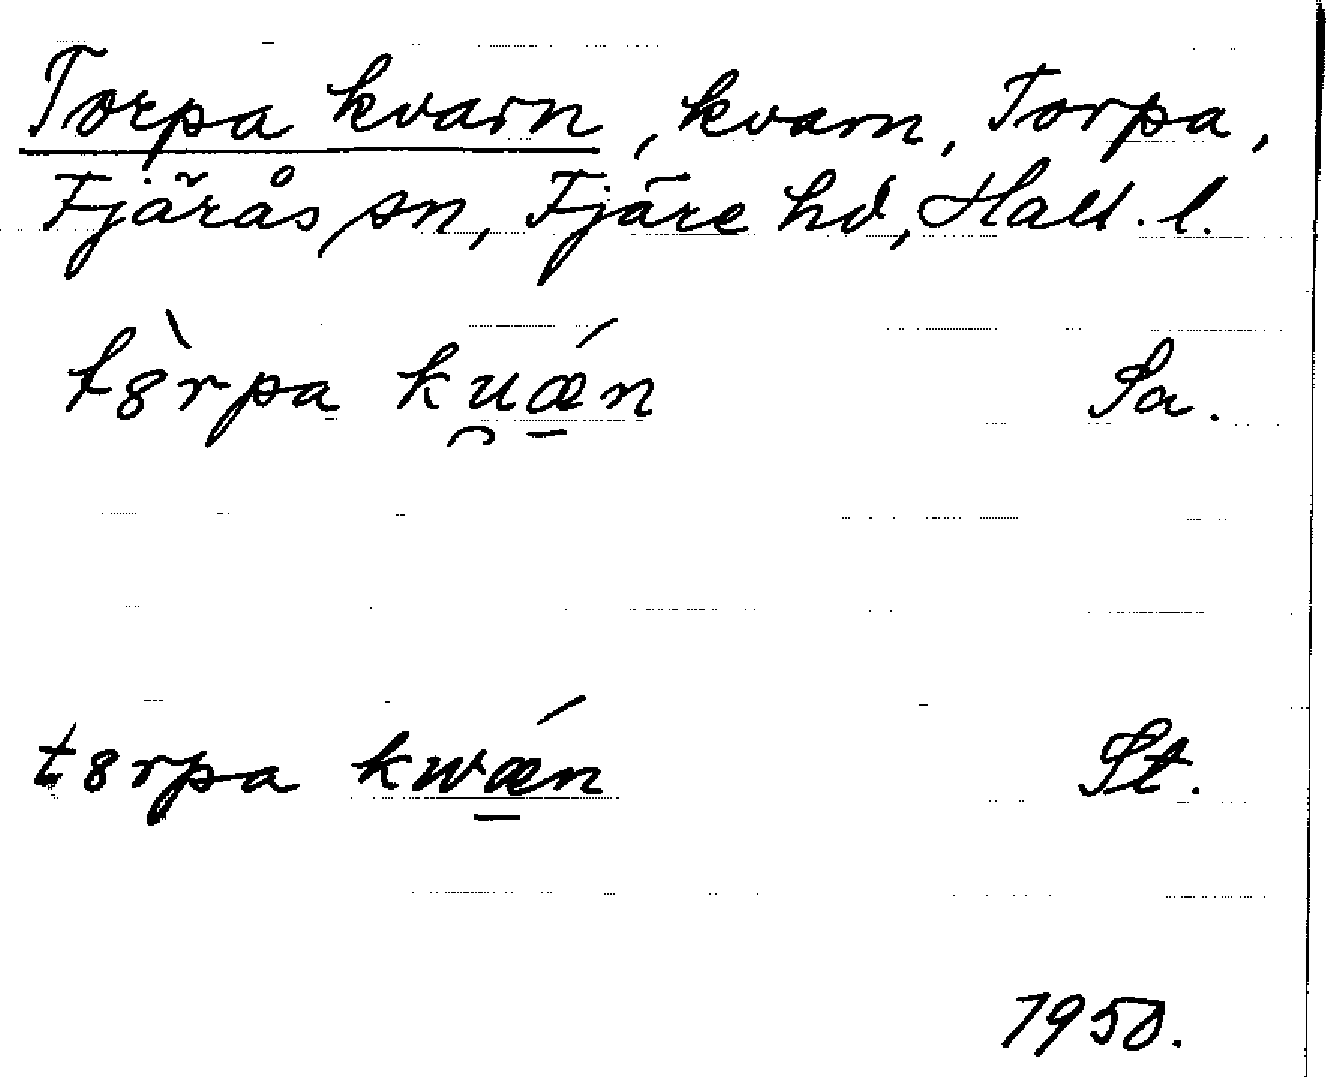 Torpa kvarn, kvarn, Torpa,
Fjärås sn, Fjäre hd, Hall. l.
t8̀rpa ku̯ǽ̠n Sa.
t8rpa kwǽ̠n St.
1950.